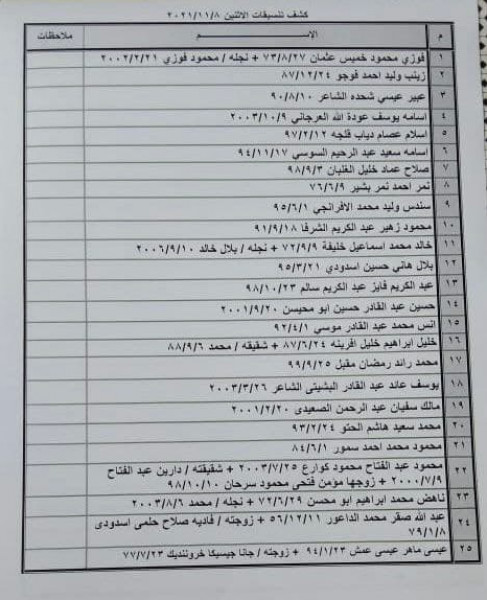 كشف تنسيقات الاثنين ٢٠٢١/١١/٨
م الاســـــــم ملاحظات
١ فوزي محمود خميس عثمان ٧٣/٨/٢٧ + نجله / محمود فوزي ٢٠٠٢/٢/٢١
٢ زينب وليد احمد قوجو ٨٧/١٢/٢٤
٣ عبير عيسي شحده الشاعر ٩٠/٨/١٠
٤ اسامه يوسف عودة الله العرجاني ٢٠٠٣/١٠/٩
٥ اسلام عصام دياب فلجه ٩٧/٢/١٢
٦ اسامه سعيد عبد الرحيم السوسي ٩٤/١١/١٧
٧ صلاح عماد خليل الغلبان ٩٨/٩/٣
٨ نمر احمد نمر بشير ٧٦/٦/٩
٩ سندس وليد محمد الافرانجي ٩٥/٦/١
١٠ محمود زهير عبد الكريم الشرفا ٩١/٩/١٨
١١ خالد محمد اسماعيل خليفة ٧٢/٩/٩ + نجله / بلال خالد ٢٠٠٦/٩/١٠
١٢ بلال هاني حسين اسدودي ٩٥/٣/٢١
١٣ عبد الكريم فايز عبد الكريم سالم ٩٨/١٠/٢٣
١٤ حسين عبد القادر حسين ابو محيسن ٢٠٠١/٩/٢٠
١٥ انس محمد عبد القادر موسي ٩٢/٤/١
١٦ خليل ابراهيم خليل افرينه ٨٧/٦/٢٤ + شقيقه / محمد ٨٨/٩/٦
١٧ محمد رائد رمضان مقبل ٩٩/٩/٢٥
١٨ يوسف عائد عبد القادر البشيتى الشاعر ٢٠٠٣/٣/٢٦
١٩ مالك سفيان عبد الرحمن الصعيدى ٢٠٠١/٢/٢٠
٢٠ محمد سعيد هاشم الحتو ٩٣/٢/٢٤
٢١ محمود محمد احمد سمور ٨٤/٦/١
٢٢ محمود عبد الفتاح محمود كوارع ٢٠٠٣/٧/٢٥ + شقيقته / دارين عبد الفتاح
٢٠٠٠/٧/٩ + زوجها مؤمن فتحى محمود سرحان ٩٨/١٠/١٠
٢٣ ناهض محمد ابراهيم ابو محسن ٧٢/٦/٢٩ + نجله / محمد ٢٠٠٣/٨/٦
٢٤ عبد الله صقر محمد الداعور ٥٦/١٢/١١ + زوجته / فاديه صلاح حلمى اسدودى
٧٩/١/٨
٢٥ عيسى ماهر عيسى عمش ٩٤/١/٢٣ + زوجته / جانا جيسيكا خرونديك ٧٧/٧/٢٣